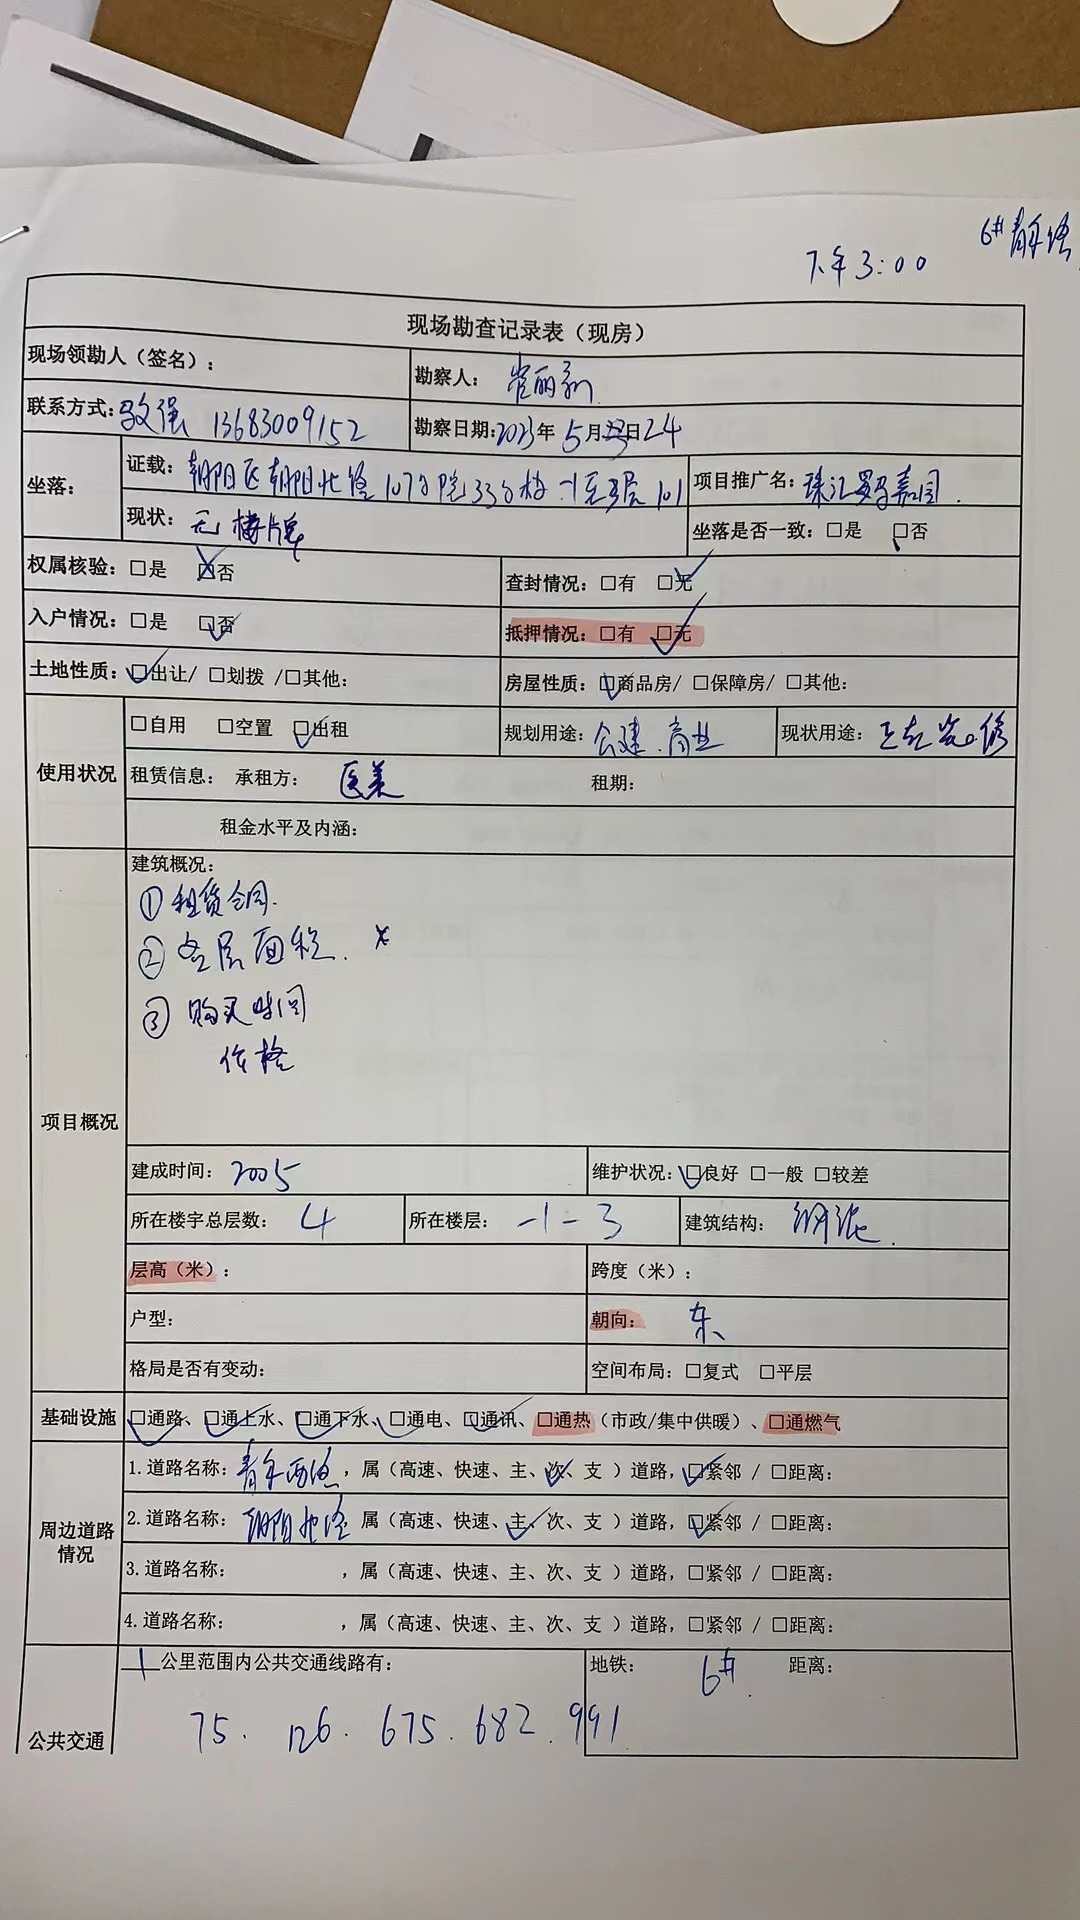 6# 青年路
下午3:00
现场勘查记录表（现房）
现场领勘人（签名）：
勘察人：
联系方式： 强 13683009152
勘察日期：2023年 5月 日24
坐落：
证载：朝阳区朝阳北路107号院33号楼-1至3层101
项目推广名：珠江罗马嘉园
现状：无楼牌
坐落是否一致：□是 □否
权属核验：□是 □否
查封情况：□有 □无
入户情况：□是 □否
抵押情况：□有 □无
土地性质：□出让/ □划拨 /□其他：
房屋性质：□商品房/ □保障房/ □其他：
使用状况
□自用 □空置 □出租
规划用途：公建 商业
现状用途：正在装修
租赁信息： 承租方： 医美
租期：
租金水平及内涵：
项目概况
建筑概况：
① 租赁合同.
② 各层面积. ×
③ 购买时间
价格
建成时间：2005
维护状况：□良好 □一般 □较差
所在楼宇总层数：4
所在楼层：-1-3
建筑结构：钢混.
层高（米）：
跨度（米）：
户型：
朝向： 东
格局是否有变动：
空间布局：□复式 □平层
基础设施
□通路、□通上水、□通下水、□通电、□通讯、□通热（市政/集中供暖）、□通燃气
周边道路情况
1.道路名称：青年西路，属（高速、快速、主、次、支 ）道路，□紧邻 / □距离：
2.道路名称：朝阳北路 属（高速、快速、主、次、支 ）道路，□紧邻 / □距离：
3.道路名称： ，属（高速、快速、主、次、支 ）道路，□紧邻 / □距离：
4.道路名称： ，属（高速、快速、主、次、支 ）道路，□紧邻 / □距离：
公共交通
1公里范围内公共交通线路有：
地铁： 6#. 距离：
75. 126. 675. 682. 991